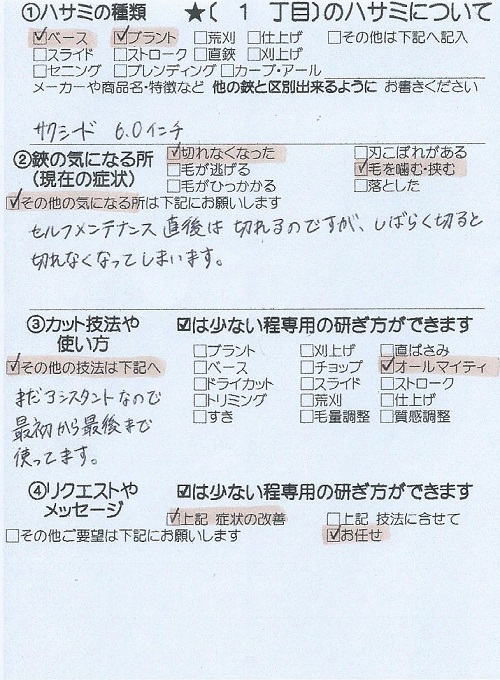 ①ハサミの種類 ★( 1 丁目)のハサミについて
☑ベース ☑ブラント □荒刈 □仕上げ □その他は下記へ記入
□スライド □ストローク □直鋏 □刈上げ
□セニング □ブレンディング □カーブ・アール
メーカーや商品名・特徴など 他の鋏と区別出来るように お書きください
サクシード 6.0インチ
②鋏の気になる所 ☑切れなくなった □刃こぼれがある
(現在の症状) □毛が逃げる ☑毛を噛む・挟む
□毛がひっかかる □落とした
☑その他の気になる所は下記にお願いします
セルフメンテナンス直後は切れるのですが、しばらく切ると
切れなくなってしまいます。
③カット技法や ☑は少ない程専用の研ぎ方ができます
使い方 □ブラント □刈上げ □直ばさみ
☑その他の技法は下記へ □ベース □チョップ ☑オールマイティ
□ドライカット □スライド □ストローク
まだアシスタントなので □トリミング □荒刈 □仕上げ
最初から最後まで □すき □毛量調整 □質感調整
使ってます。
④リクエストや ☑は少ない程専用の研ぎ方ができます
メッセージ ☑上記 症状の改善 □上記 技法に合せて
□その他ご要望は下記にお願いします ☑お任せ